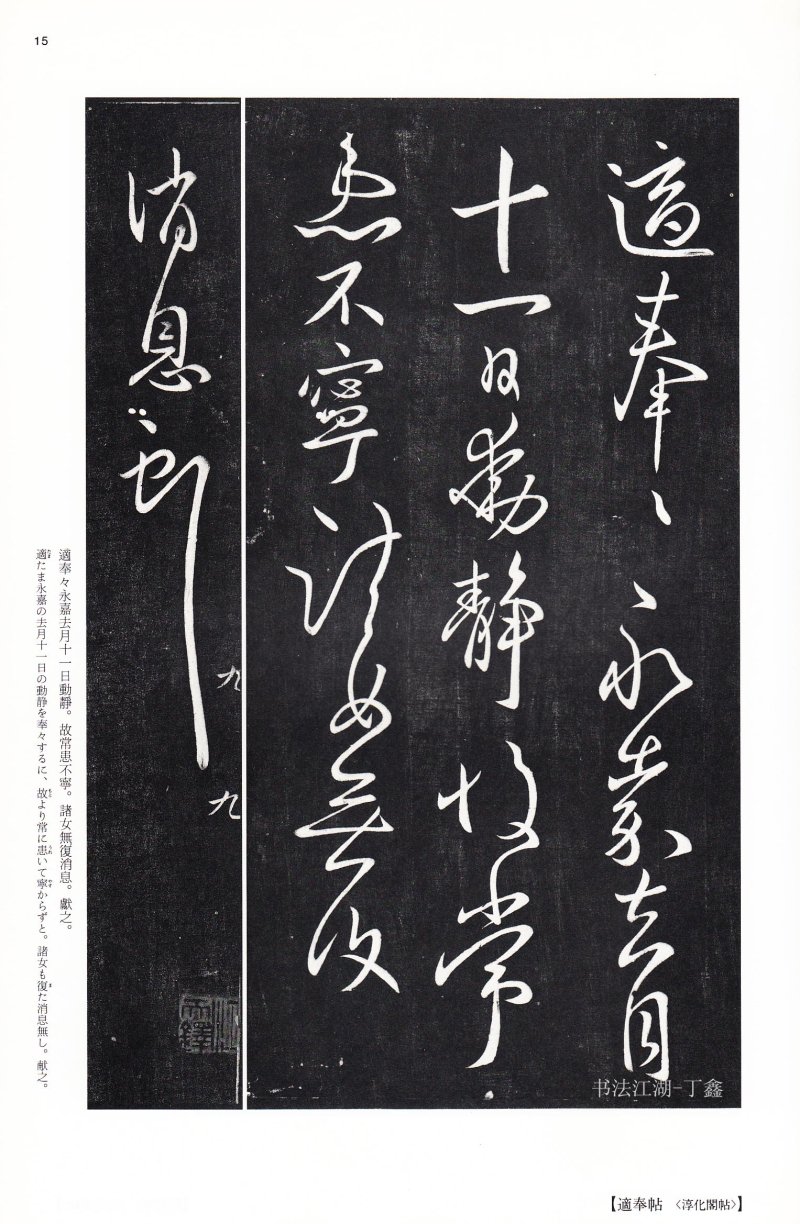 15
適奉〻永嘉去月
十一日動靜故常
患不寧諸女無復
消息獻之
九
九
適奉々永嘉去月十一日動靜。故常患不寧。諸女無復消息。獻之。
適たま永嘉の去月十一日の動静を奉々するに、故より常に患いて寧からずと。諸女も復た消息無し。献之。
书法江湖-丁鑫
【適奉帖 〈淳化閣帖〉】